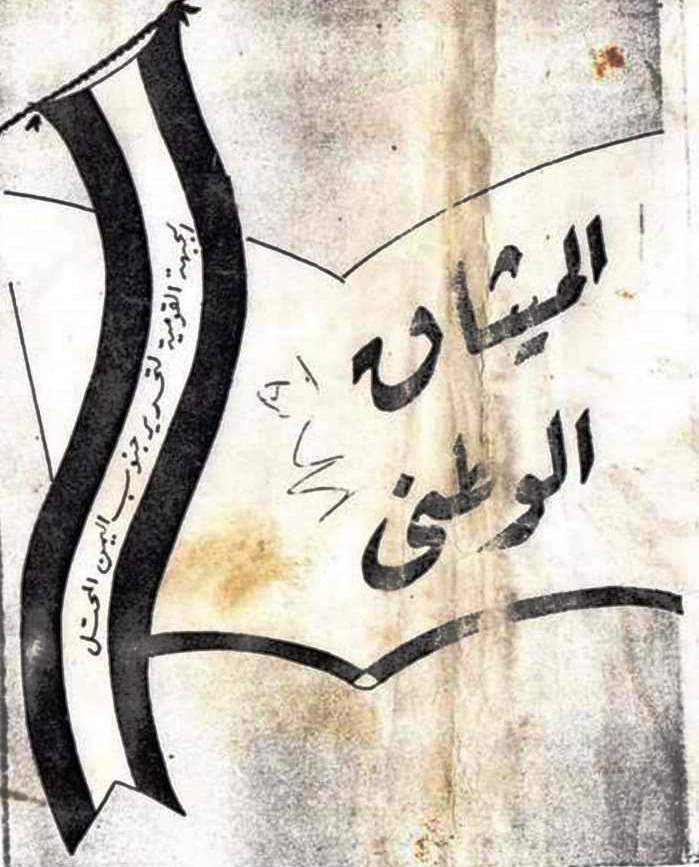 الميثاق
الوطني
الجبهة القومية لتحرير جنوب اليمن المحتل